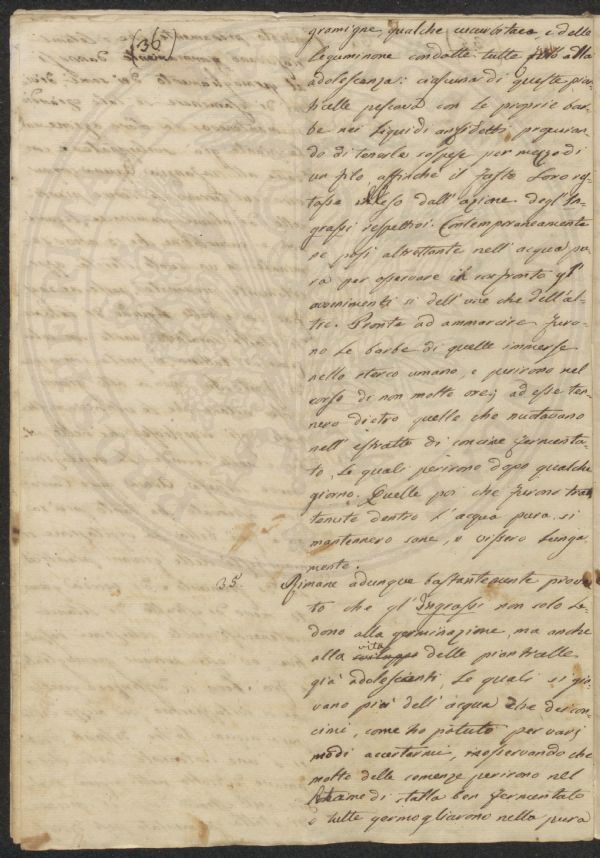 (36)
gramigne, qualche cucurbitacea, e delle
leguminose condotte tutte fino alla
adolescenza: ciascuna di queste pian-
ticelle pescava con le proprie bar-
be nei liquidi anzidetti procuran-
do di tenerle sospese per mezzo di
un filo affinchè il fusto loro res-
tasse illeso dall'azione degl'In-
grassi rispettivi. Contemporaneamente
ne posi altrettante nell'acqua pu-
ra per osservare in confronto gl'
avvenimenti si dell'une che dell'al-
tre. Pronte ad ammarcire furo-
no le barbe di quelle immerse
nello sterco umano, e perirono nel
corso di non molte ore; ad esse ten-
nero dietro quelle che nuotavano
nell'estratto di concime fermenta-
to, le quali perirono dopo qualche
giorno. Quelle poi che furono trat-
tenute dentro l'acqua pura si
mantennero sane, e vissero lunga-
mente.
35. Rimane adunque bastantemente prova-
to che gl'Ingrassi non solo le-
dono alla germinazione, ma anche
vita
alla sviluppo delle pianticelle
già adolescenti, le quali si gio-
vano più dell'acqua che dei con-
cimi, come ho potuto per varj
modi accertarmi, osservando che
molte delle semenze perirono nel
letame di stalla ben fermentato
e tutte germogliarono nella pura